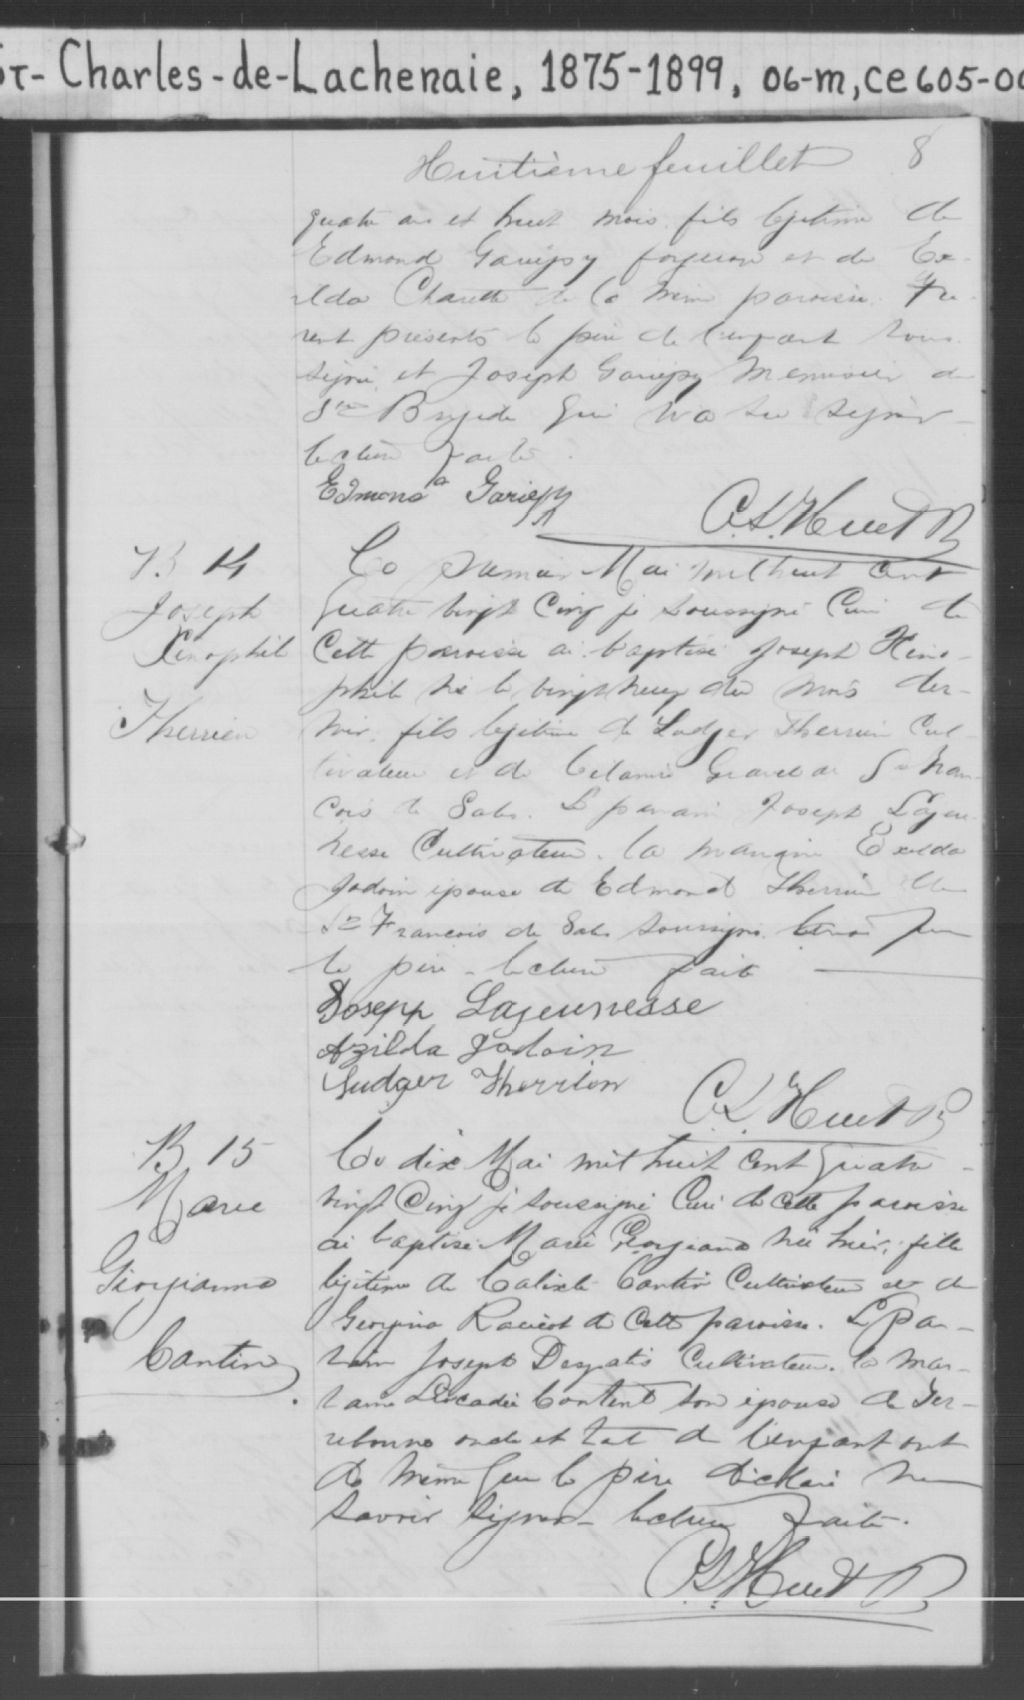 St-Charles-de-Lachenaie, 1875-1899, 06-m, ce605-00
Huitième feuillet 8
quatre ans et huit mois fils légitime de
Edmond Gariépy forgeron et de Ex-
ilda Charette de la même paroisse. Fu-
rent présents le père de l'enfant sous
signé et Joseph Gariépy menuisier de
Ste Brigide qui n'a su signer
lecture faite.
Edmond Gariépy
B 14
Joseph
Xénophile
Therrien
Ce Mai mil huit cent
quatre vingt cinq je soussigné Curé de
cette paroisse ai baptisé Joseph Xéno-
phile né le vingt neuf du mois der-
nier, fils légitime de Ludger Therrien Cul-
tivateur et de Gravel de St Fran-
cois de Sales. Le parrain Joseph Lajeu-
nesse Cultivateur. la marraine Exilda
Jodoin épouse de Edmond Therrien de
St Francois de Sales soussignés
le père - lecture faite
Joseph Lajeunesse
Azilda Jodoin
Ludger Therrien
B 15
Marie
Georgianna
Cantin
Ce dix Mai mil huit cent quatre
vingt cinq je soussigné Curé de cette paroisse
ai baptisé Marie Georgiana née hier, fille
légitime de Calixte Cantin Cultivateur et de
Georgina Racicot de cette paroisse. Le Par-
rain Joseph Cultivateur. la mar-
raine Léocadie Content son épouse de Ter-
rebonne oncle et tante de l'enfant ont
de même que le père déclaré ne
savoir signer - lecture faite.